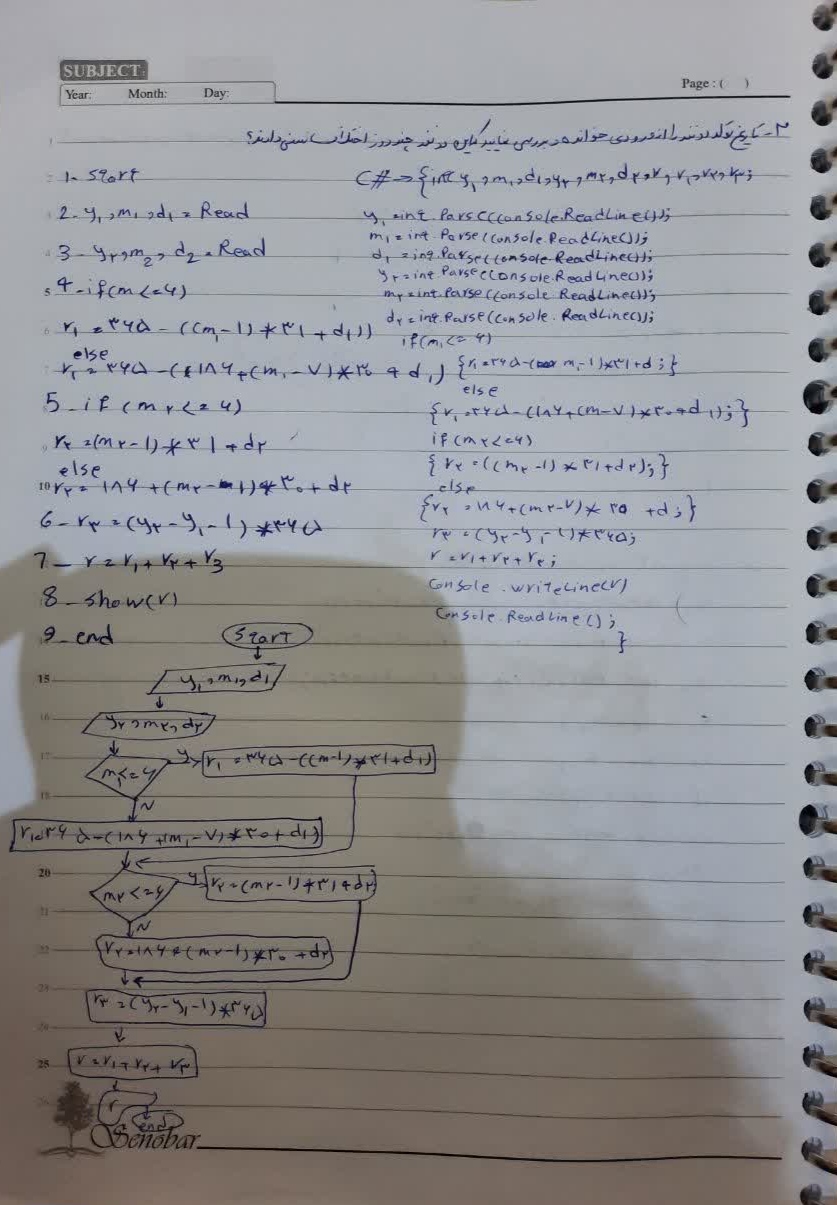 SUBJECT:
Year: Month: Day:
Page : ( )
۲- تاریخ تولد دو نفر را از ورودی خوانده و بررسی نمایید که این دو نفر چند روز اختلاف سنی دارند؟
1- Start
2- y₁, m₁, d₁ = Read
3- y۲, m₂, d₂ = Read
4- if(m <= ۶)
r₁ = ۳۶۵ - ((m₁-1) * ۳۱ + d₁))
else
r₁ = ۳۶۵ - (۱۸۶ + (m₁ - ۷) * ۳۰ + d₁)
5- if (m۲ <= ۶)
r۲ = (m۲-1) * ۳۱ + d۲
else
r۲ = ۱۸۶ + (m۲ - 1) * ۳۰ + d۲
6- r۳ = (y۲ - y₁ - 1) * ۳۶۵
7- r = r₁ + r۲ + r3
8- show(r)
9- end
C# => { int y₁, m₁, d₁, y۲, m۲, d۲, r, r₁, r۲, r۳;
y₁ = int.Parse(Console.ReadLine());
m₁ = int.Parse(Console.ReadLine());
d₁ = int.Parse(Console.ReadLine());
y۲ = int.Parse(Console.ReadLine());
m۲ = int.Parse(Console.ReadLine());
d۲ = int.Parse(Console.ReadLine());
if(m₁ <= ۶)
{r₁ = ۳۶۵ - ( m₁-1) * ۳۱ + d₁;}
else
{r₁ = ۳۶۵ - (۱۸۶ + (m - ۷) * ۳۰ + d₁);}
if(m۲ <= ۶)
{ r۲ = ((m۲ -1) * ۳۱ + d۲);}
else
{r۲ = ۱۸۶ + (m۲ - ۷) * ۳۰ + d;}
r۳ = (y۲ - y₁ - 1) * ۳۶۵;
r = r₁ + r۲ + r۳;
Console.WriteLine(r)
Console.ReadLine();
}
Start
y₁, m₁, d₁
y۲, m۲, d۲
m₁ <= ۶
y
r₁ = ۳۶۵ - ((m-1) * ۳۱ + d₁)
N
r₁ = ۳۶۵ - (۱۸۶ + (m₁ - ۷) * ۳۰ + d₁)
m۲ <= ۶
y
r۲ = (m۲-1) * ۳۱ + d۲
N
r۲ = ۱۸۶ + (m۲ - 1) * ۳۰ + d۲
r۳ = (y۲ - y₁ - 1) * ۳۶۵
r = r₁ + r۲ + r۳
r
end
Senobar